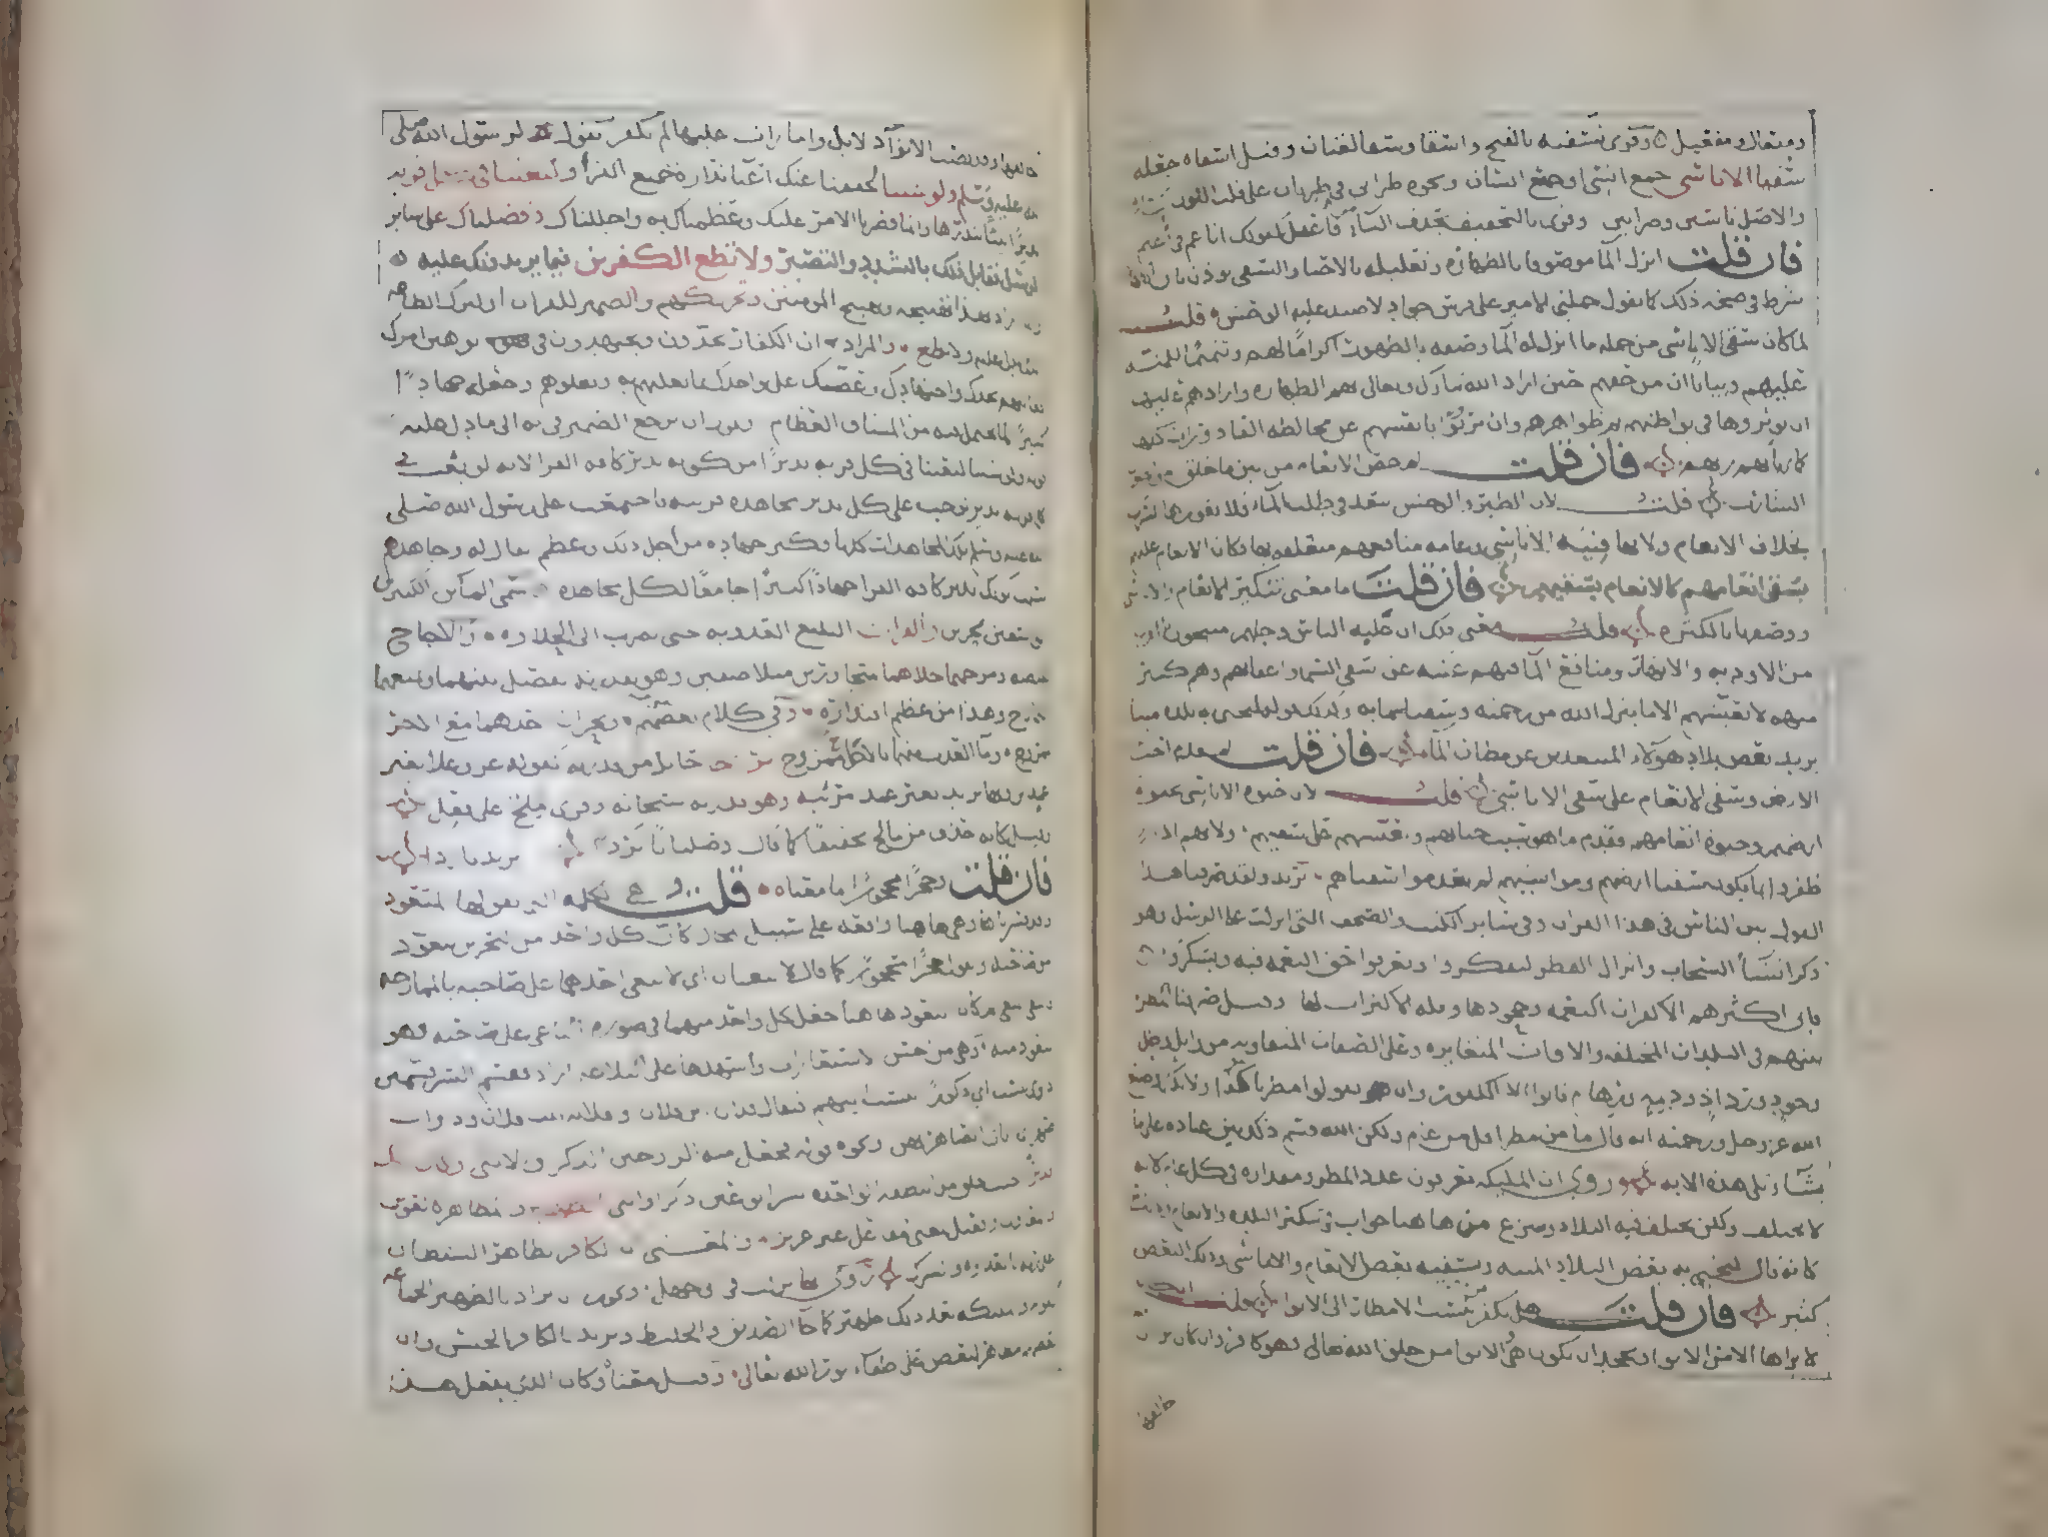 ومفعال ومفعيل وقرئ نسقيه بالفتح واسقا وسقا لغتان وقيل اسقاه جعله
سقيا الاناسي جمع انسي او جمع انسان ونحوه ظرابي في ظربان على قلب النون ياء
والاصل اناسين وظرابين وقرئ بالتخفيف بحذف الياء افاعيل كقولك اناعم في اناعيم
فان قلت انزل الماء موصوفا بالطهارة وتعليله بالاحيا والسقى يوذن بان الطهارة
شرط في صحة ذلك كما تقول حملني الامير على فرس جواد لاصيد عليه الوحش قلت
لما كان سقى الاناسي من جملة ما انزل له الماء وصفه بالطهور اكراما لهم وتتميما للمنة
عليهم وبيانا ان من حقهم حين اراد الله تبارك وتعالى لهم الطهارة وارادهم عليها
ان يوثروها في بواطنهم ثم ظواهرهم وان يربوا بانفسهم عن مخالطة القاذورات كلها
كما ربا بهم ربهم فان قلت لم خص الانعام من بين ما خلق من ذوي
الشارب قلت لان الطير والوحش تبعد في طلب الماء فلا يعوزها الشرب
بخلاف الانعام ولانها قنية الاناسي وعامة منافعهم متعلقة بها فكان الانعام عليهم
بسقى انعامهم كالانعام بسقيهم فان قلت ما معنى تنكير الانعام والاناسي
ووصفها بالكثرة قلت معنى ذلك ان علية الناس وجلهم منيخون بالقرب
من الاودية والانهار ومنابع الماء فبهم غنية عن سقى السماء واعقابهم وهم كثير
منهم لا يعيشهم الا ما ينزل الله من رحمته وسقيا سمايه وكذلك قوله لنحيي به بلدة ميتا
يريد بعض بلاد هولاء المتبعدين عن مظان الماء فان قلت لم قدم احيا
الارض وسقى الانعام على سقى الاناسي قلت لان حيوة الاناسي بحيوة
ارضهم وحيوة انعامهم فقدم ما هو سبب حياتهم وتعيشهم على سقيهم ولانهم اذا
ظفروا بما يكون سقيا ارضهم ومواشيهم لم يعدموا سقياهم يريد ولقد صرفنا هذا
القول بين الناس في هذا القران وفي سائر الكتب والصحف التي انزلت على الرسل وهو
ذكر انشاء السحاب وانزال القطر ليفكروا ويعتبروا ويعرفوا حق النعمة فيه ويشكروا
فابى اكثرهم الا كفران النعمة وجحودها وقلة الاكتراث لها وقيل صرفنا المطر
بينهم في البلدان المختلفة والاوقات المتغايرة وعلى الصفات المتفاوتة من وابل وطل
وجود ورذاذ وديمة ورهام فابوا الا الكفور وان يقولوا مطرنا بنوء كذا ولا يذكروا صنع
الله عز وجل ورحمته ابن عباس قال ما من عام اقل مطرا من عام ولكن الله قسم ذلك بين عباده على ما
يشاء وتلى هذه الاية وروي ان الملائكة يعرفون عدد المطر ومقداره في كل عام لانه
لا يختلف ولكن يختلف فيه البلاد وينتزع من هاهنا جواب في تنكير البلدة والانعام والاناسي
كانه قال لنحيي به بعض البلاد الميتة ونسقيه بعض الانعام والاناسي وذلك البعض
كثير فان قلت هل يكفر من ينسب الامطار الى الانواء قلت ان كان
لا يراها الا من الانواء ويجحد ان تكون هي والانواء من خلق الله تعالى فهو كافر وان كان يرى
ان الله خالقها وقد نصب الانواء دلايل وامارات عليها لم يكفر يقول لرسول الله صلى
الله عليه وسلم ولو شئنا لخففنا عنك اعباء نذارة جميع القرى ولبعثنا في كل قرية
نذيرا نبيا ينذرها وانما قصرنا الامر عليك وعظمناك به واجللناك وفضلناك على سائر
الرسل فقابل ذلك بالتشدد والتصبر ولا تطع الكفرين فيما يريدونك عليه
وانما اراد بهذا تهييجه وتهييج المومنين وتحريكهم والضمير للقران او لترك الطاعة
الذي يدل عليه ولا تطع والمراد ان الكفار يجدون ويجتهدون في توهين امرك
فقابلهم بجدك واجتهادك وعضك على نواجذك بما تغلبهم به وتعلوهم وجعله جهادا
كبيرا لما يحتمل فيه من المشاق العظام ويجوز ان يرجع الضمير في به الى ما دل عليه
قوله ولو شئنا لبعثنا في كل قرية نذيرا من كونه نذير كافة القرى لانه لو بعث في
كل قرية نذير لوجب على كل نذير مجاهدة قريته فاجتمعت على رسول الله صلى
الله عليه وسلم تلك المجاهدات كلها وكبر جهاده من اجل ذلك وعظم فقال له وجاهدهم
بسبب كونك نذير كافة القرى جهادا كبيرا جامعا لكل مجاهدة سمى الماين الكثيرين
الواسعين بحرين والفرات البليغ العذوبة حتى يضرب الى الحلاوة والاجاج
نقيضه ومرجهما خلاهما متجاورين متلاصقين وهو بقدرته يفصل بينهما ويمنعهما
التمازج وهذا من عظيم اقتداره وفي كلام بعضهم وبحران احدهما مع الاخر
ممزوج وماء العذب منهما بالاجاج ممزوج برزخا حايلا من قدرته كقوله عز وعلا بغير
عمد ترونها يريد بغير عمد مرئية وهو قدرته سبحانه وقرئ ملح على فعل
وقيل كانه حذف من مالح تخفيفا كما قال وصليانا بردا يريد باردا
فان قلت وحجرا محجورا ما معناه قلت هي الكلمة التي يقولها المتعوذ
وقد فسرناها وهي هاهنا واقعة على سبيل المجاز كان كل واحد من البحرين يتعوذ
من صاحبه ويقول له حجرا محجورا كما قال لا يبغيان اي لا يبغي احدهما على صاحبه بالممازجة
فانتفاء البغي ثم كالتعوذ هاهنا جعل كل واحد منهما في صورة الباغي على صاحبه فهو
يتعوذ منه وهي من احسن الاستعارات واشهدها على البلاغة اراد فقسم البشر قسمين
ذوي نسب اي ذكورا ينسب اليهم فيقال فلان بن فلان وفلانة بنت فلان وذوات
صهر اي اناثا يصاهر بهن ونحوه قوله فجعل منه الزوجين الذكر والانثى وكان ربك
قديرا حيث خلق من النطفة الواحدة بشرا نوعين ذكرا وانثى الظهير والمظاهر كالعوين
والمعاون وفعيل بمعنى مفاعل غير عزيز والمعنى ان الكافر يظاهر الشيطان
على ربه بالعداوة والشرك روي انها نزلت في ابي جهل ويجوز ان يراد بالظهير الجماعة
كقوله والملائكة بعد ذلك ظهير كما جاء الصديق والخليط ويريد بالكافر الجنس وان
بعضهم مظاهر لبعض على اطفاء نور الله تعالى وقيل معناه وكان الذي يفعل هذا